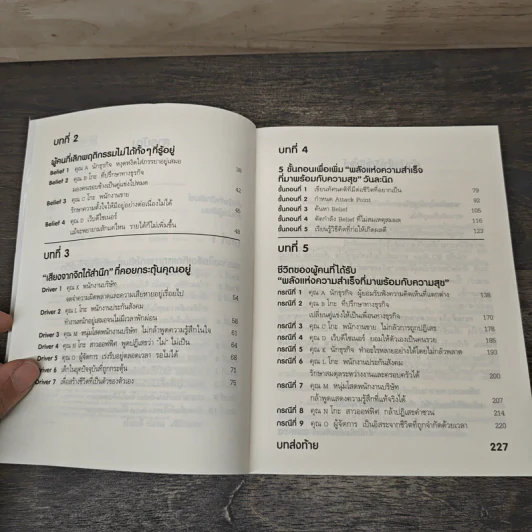 บทที่ 2
ผู้คนที่เลิกพฤติกรรมไม่ได้ทั้งๆที่รู้อยู่
Belief 1 คุณ A นักธุรกิจ หงุดหงิดใส่ภรรยาอยู่เสมอ 39
Belief 2 คุณ B โกะ ที่ปรึกษาทางธุรกิจ
มองคนรอบข้างเป็นคู่แข่งไปหมด 42
Belief 3 คุณ C โกะ พนักงานขาย
รักษาความตั้งใจให้มีอยู่อย่างต่อเนื่องไม่ได้ 45
Belief 4 คุณ D เว็บดีไซเนอร์
แม้จะพยายามสักแค่ไหน รายได้ก็ไม่เพิ่มขึ้น 48
บทที่ 3
"เสียงจากจิตใต้สำนึก" ที่คอยกระตุ้นคุณอยู่
Driver 1 คุณ K พนักงานบริษัท
จดจำความผิดพลาดและความเสียหายอยู่เรื่อยไป 54
Driver 2 คุณ L โกะ พนักงานประกันสังคม
ทำงานหนักอยู่เสมอจนไม่มีเวลาพักผ่อน 58
Driver 3 คุณ M หนุ่มโสดพนักงานบริษัท ไม่กล้าพูดความรู้สึกในใจ 61
Driver 4 คุณ N โกะ สาวออฟฟิศ พูดปฏิเสธว่า "ไม่" ไม่เป็น 64
Driver 5 คุณ O ผู้จัดการ เร่งรีบอยู่ตลอดเวลา รอไม่ได้ 68
Driver 6 เด็กในยุคปัจจุบันที่ถูกกระตุ้น 71
Driver 7 เพื่อสร้างชีวิตที่เป็นตัวของตัวเอง 75
บทที่ 4
5 ขั้นตอนเพื่อเพิ่ม "พลังแห่งความสำเร็จ
ที่มาพร้อมกับความสุข" วันละนิด
ขั้นตอนที่ 1 เขียนทัศนคติที่มีต่อชีวิตที่อยากเป็น 79
ขั้นตอนที่ 2 กำหนด Attack Point 92
ขั้นตอนที่ 3 ค้นหา Belief 105
ขั้นตอนที่ 4 ตัดกำลัง Belief ที่ไม่สมเหตุสมผล 116
ขั้นตอนที่ 5 เรียนรู้วิธีคิดที่ก่อให้เกิดผลดี 123
บทที่ 5
ชีวิตของผู้คนที่ได้รับ
"พลังแห่งความสำเร็จที่มาพร้อมกับความสุข"
กรณีที่ 1 คุณ A นักธุรกิจ ผู้ยอมรับฟังความคิดเห็นที่แตกต่าง 138
กรณีที่ 2 คุณ B โกะ ที่ปรึกษาทางธุรกิจ
เปลี่ยนคู่แข่งให้เป็นเพื่อนทางธุรกิจ 170
กรณีที่ 3 คุณ C โกะ พนักงานขาย ไม่กลัวการถูกปฏิเสธ 178
กรณีที่ 4 คุณ D เว็บดีไซเนอร์ ยอมให้ตัวเองเป็นคนรวย 185
กรณีที่ 5 คุณ K นักธุรกิจ ทำอะไรหลายอย่างได้โดยไม่กลัวพลาด 193
กรณีที่ 6 คุณ L โกะ พนักงานประกันสังคม
รักษาสมดุลระหว่างงานและครอบครัวได้ 200
กรณีที่ 7 คุณ M หนุ่มโสดพนักงานบริษัท
กล้าแสดงความรู้สึกที่แท้จริงได้ 207
กรณีที่ 8 คุณ N โกะ สาวออฟฟิศ กล้าปฏิเสธคำชวน 214
กรณีที่ 9 คุณ O ผู้จัดการ เป็นอิสระจากชีวิตที่ถูกกำจัดด้วยเวลา 220
บทส่งท้าย 227